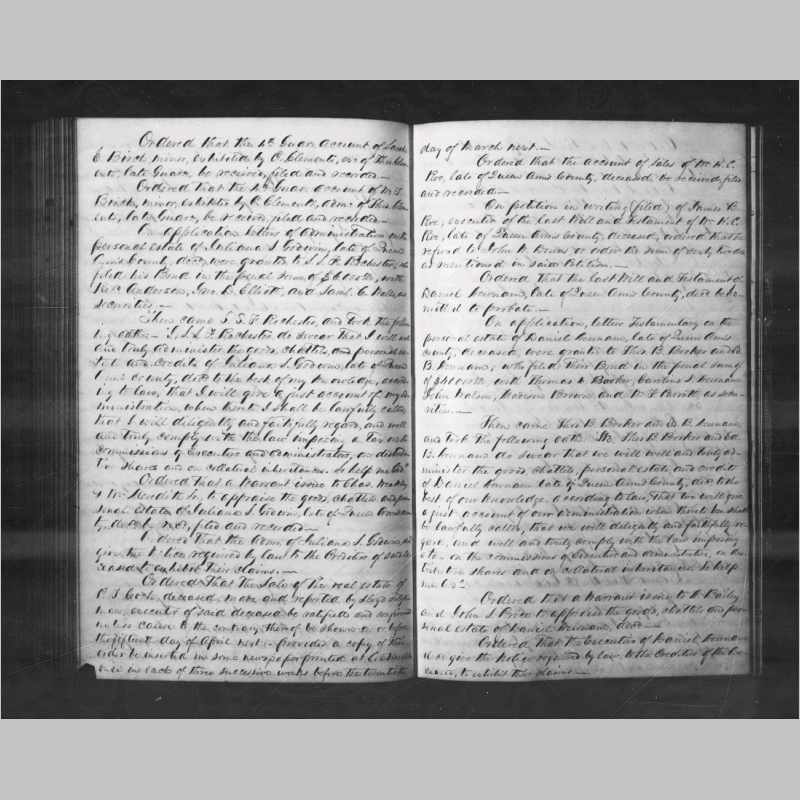 Ordered that the 4th Guar. account of Sarah
E. Birch minor, exhibited by C. Clements, exr of
late Guar. be received, filed and recorded—
Ordered that the 4th Guar. account of
Birch, minor, exhibited by C. Clements, admr of
late Guar. be received, filed and recorded—
On application letters of administration on the
personal estate of Juliana S. late of Queen
Anns County, decd were granted to S. S. F. Rochester, who
filed his Bond in the penal sum of with
Anderson, Geo. D. Elliott, and Saml. C. as
securities,—
Then came S. S. F. Rochester, and took the follow
ing oath— I, S. S. F. Rochester do swear that I will well
and truly administer the goods, chattels, and personal es-
tate and credits of Juliana S. late of Queen
Anns County, decd to the best of my Knowledge, accord
ing to law, that I will give a just account of my ad
ministration, when thereto I shall be lawfully called,
that I will diligently and faithfully regard, and well
and truly comply with the law imposing a tax on the
commissions of Executors and administrators, on distribu
tive shares and on collateral inheritances. So help me God.
Ordered that a Warrant issue to Chas.
& Wm. Meredith to appraise the goods, chattels and per
sonal Estate of Juliana S. late of Queen Anns Coun
ty, decd filed and recorded—
Ordered that the Admr of Juliana S.
give the Notice required by law to the Creditors of said de
ceased to exhibit their claims.—
Ordered that the Sale of the real estate of
deceased, made and reported by
executor of said deceased be ratified and confirmed
unless cause to the contrary thereof be shown on or before
the fifteenth day of April next— provided a copy of this
order be inserted in some newspaper printed at Centreville
once in each of three successive weeks before the twentieth
day of March next.—
Ordered that the account of Sales of Wm. H. C.
Roe, late of Queen Anns County, deceased, be received, filed
and recorded—
On petition in writing (filed) of James B.
Roe, executor of the Last Will and Testament of Wm. H. C.
Roe, late of Queen Anns County, deceased, ordered that he
refund to John W. the sum of
as mentioned in said Petition.—
Ordered that the Last Will and Testament of
Daniel Newnam, late of Queen Anns County, decd be ad-
mitted to probate.—
On application, letters Testamentary on the
personal estate of Daniel Newnam, late of Queen Anns
County, deceased, were granted to Thos. B. Booker and
B. Newnam, who filed their Bond in the penal sum
of with Thomas Booker, Newnam
John Watson, Brown and W. F. Parrott as secu-
rities—
Then came Thos. B. Booker and B. Newnam,
and took the following oath We Thos. B. Booker and
B. Newnam do swear that we will well and truly ad-
minister the goods, chattels, personal estate and credits
of Daniel Newnam late of Queen Anns County, decd to the
best of our Knowledge, according to law, that we will give
a just account of our administration when thereto we shall
be lawfully called, that we will diligently and faithfully re-
gard, and well and truly comply with the law imposing
a tax on the commissions of Executors and administrators, on dis
tributive shares and on collateral inheritances So help
me God.
Ordered that a Warrant issue to Bailey
and John S. to appraise the goods, chattels and per
sonal estate of Daniel Newnam, decd—
Ordered that the Executors of Daniel Newnam
do give the Notice required by law to the Creditors of the de-
ceased, to exhibit their claims—